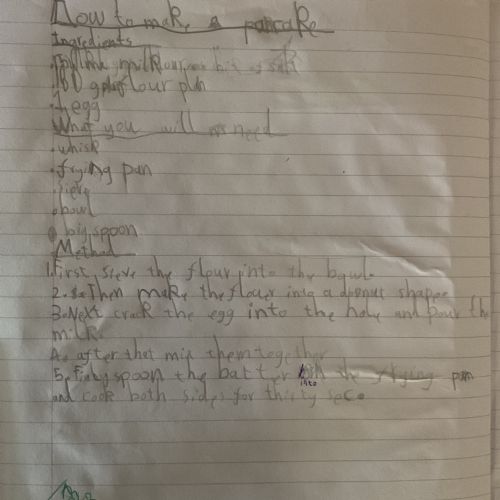 How to make a pancake
Ingredients
milk
flour
1 egg
What you will need
whisk
frying pan
sieve
bowl
big spoon
Method
1. First, sieve the flour into the bowl.
2. Then make the flour into a donut shape.
3. Next crack the egg into the hole and pour the
milk.
4. after that mix them together
5. spoon the batter into the frying pan
and cook both sides for thirty sec.